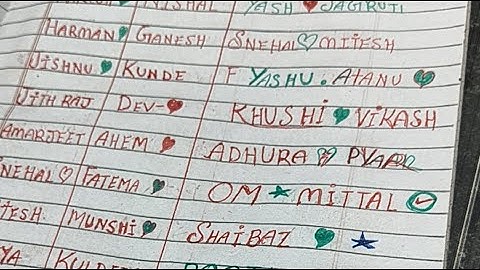 YASH ❤ JAGRUTI
HARMAN 💚 GANESH SNEHAL ♡ MITESH
JISHNU 💚 KUNDE F YASHU . ATANU 💚
JITHRAJ DEV- ❤ KHUSHI 💚 VIKASH
AMARJEET AHEM ❤ ADHURA PYAAR
SNEHAL ♡ FATEMA 💚 OM ★ MITTAL ✓
MUNSHI 💚 SHAIBAZ 💚 ★